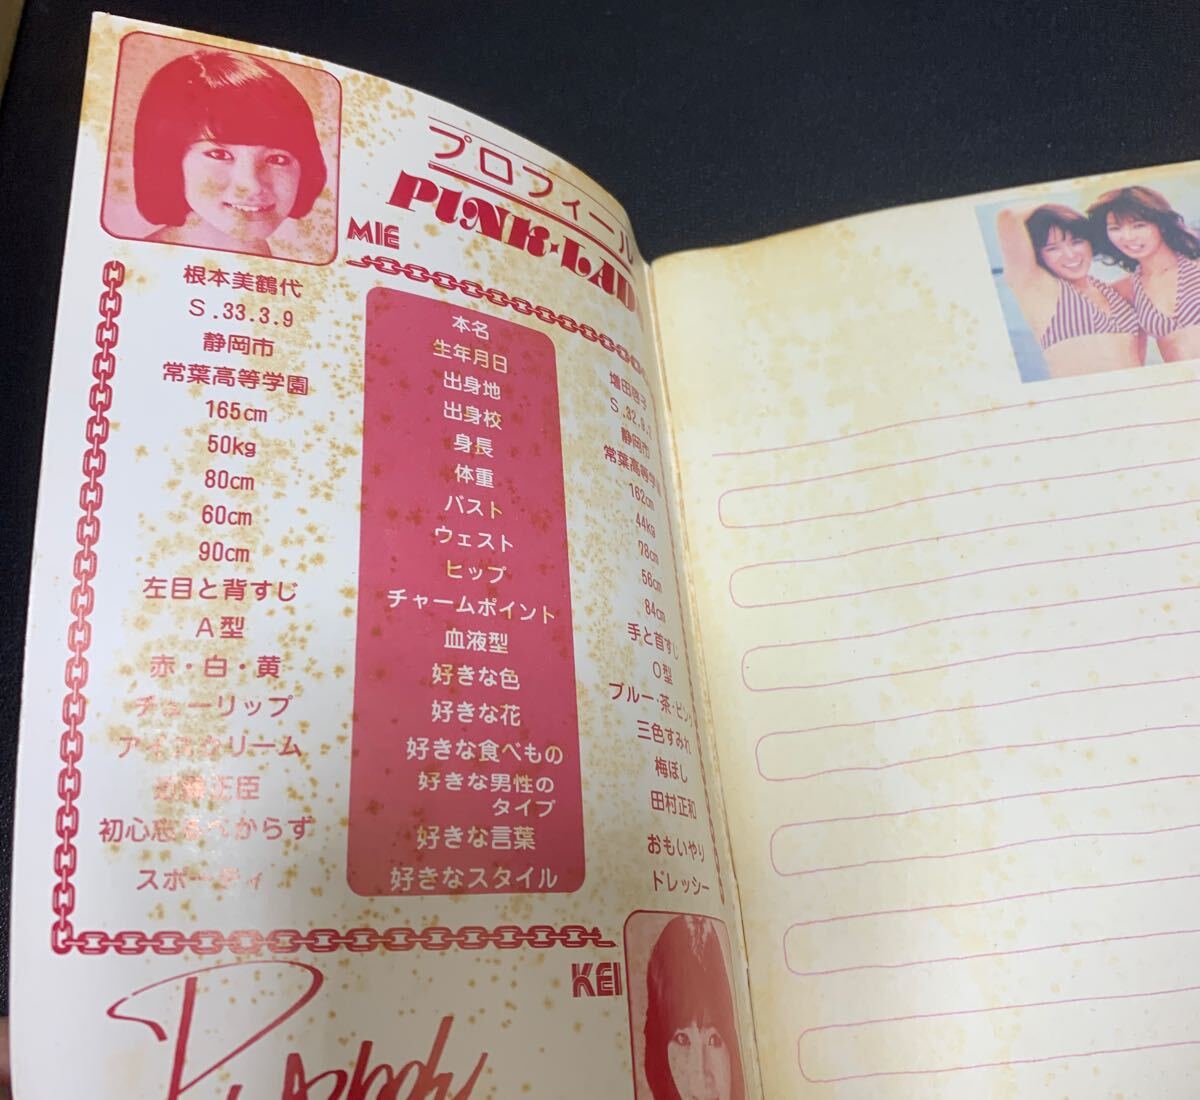 プロフィール
PINK★LAD
MIE
根本美鶴代 本名 増田啓子
S.33.3.9 生年月日 S.32.9.2
静岡市 出身地 静岡市
常葉高等学園 出身校 常葉高等学園
165cm 身長 162cm
50kg 体重 44kg
80cm バスト 78cm
60cm ウェスト 58cm
90cm ヒップ 84cm
左目と背すじ チャームポイント 手と首すじ
A型 血液型 O型
赤・白・黄 好きな色 ブルー・茶・ピンク
チューリップ 好きな花 三色すみれ
アイスクリーム 好きな食べもの 梅ぼし
正臣 好きな男性の
タイプ 田村正和
初心忘るべからず 好きな言葉 おもいやり
スポーティ 好きなスタイル ドレッシー
KEI